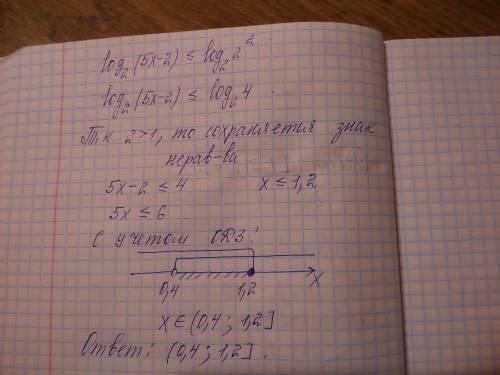 log₂(5x-2) ≤ log₂2²
log₂(5x-2) ≤ log₂4
Т.к. 2>1, то сохраняется знак
нерав-ва
5x-2 ≤ 4 x ≤ 1,2
5x ≤ 6
С учетом ОДЗ:
0,4 1,2 x
x ∈ (0,4; 1,2]
Ответ: (0,4; 1,2].